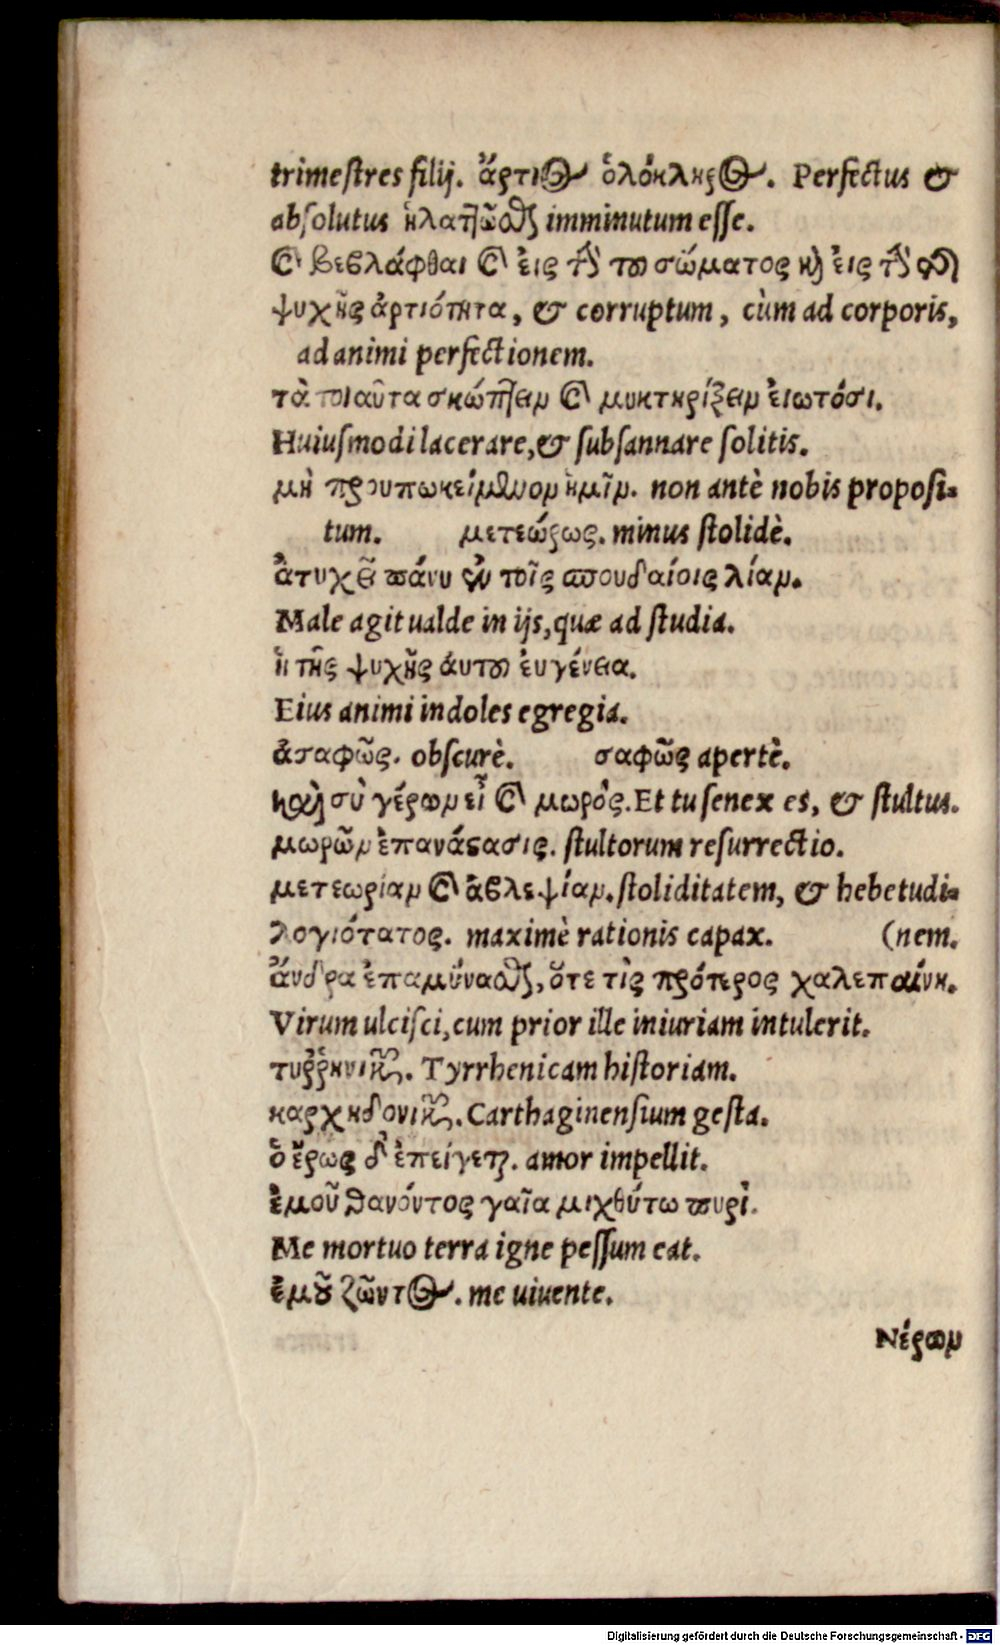 trimestres filij. ἄρτιος ὁλόκληρος. Perfectus &
absolutus ἠλαττῶσθαι imminutum esse.
καὶ βεβλάφθαι καὶ εἰς τὴν τοῦ σώματος καὶ εἰς τὴν τῆς
ψυχῆς ἀρτιότητα, & corruptum, cùm ad corporis,
ad animi perfectionem.
τὰ τοιαῦτα σκώπτειν καὶ μυκτηρίζειν ἐιωτόσι.
Huiusmodi lacerare, & subsannare solitis.
μὴ προυπωκείμενον ἡμῖν. non antè nobis proposi-
tum. μετεώρως. minus stolidè.
ἀτυχεῖ πάνυ ἐν τοῖς σπουδαίοις λίαν.
Male agit ualde in ijs, quæ ad studia.
ἡ τῆς ψυχῆς ἀυτοῦ ἐυγένεια.
Eius animi indoles egregia.
ἀσαφῶς. obscurè. σαφῶς apertè.
καὶ σὺ γέρων εἶ καὶ μωρὸς. Et tu senex es, & stultus.
μωρῶν ἐπανάστασις. stultorum resurrectio.
μετεωρίαν καὶ ἀβλεψίαν. stoliditatem, & hebetudi-
λογιότατος. maximè rationis capax. (nem.
ἄνδρα ἐπαμύνασθαι, ὅτε τὶς πρότερος χαλεπαίνη.
Virum ulcisci, cum prior ille iniuriam intulerit.
τυῤῥηνικῶν. Tyrrhenicam historiam.
καρχηδονικῶν. Carthaginensium gesta.
ὁ ἔρως δ' ἐπείγεται. amor impellit.
ἐμοῦ θανόντος γαῖα μιχθύτω πυρὶ.
Me mortuo terra igne pessum eat.
ἐμοῦ ζῶντος. me uiuente.
Νέρων
Digitalisierung gefördert durch die Deutsche Forschungsgemeinschaft - DFG